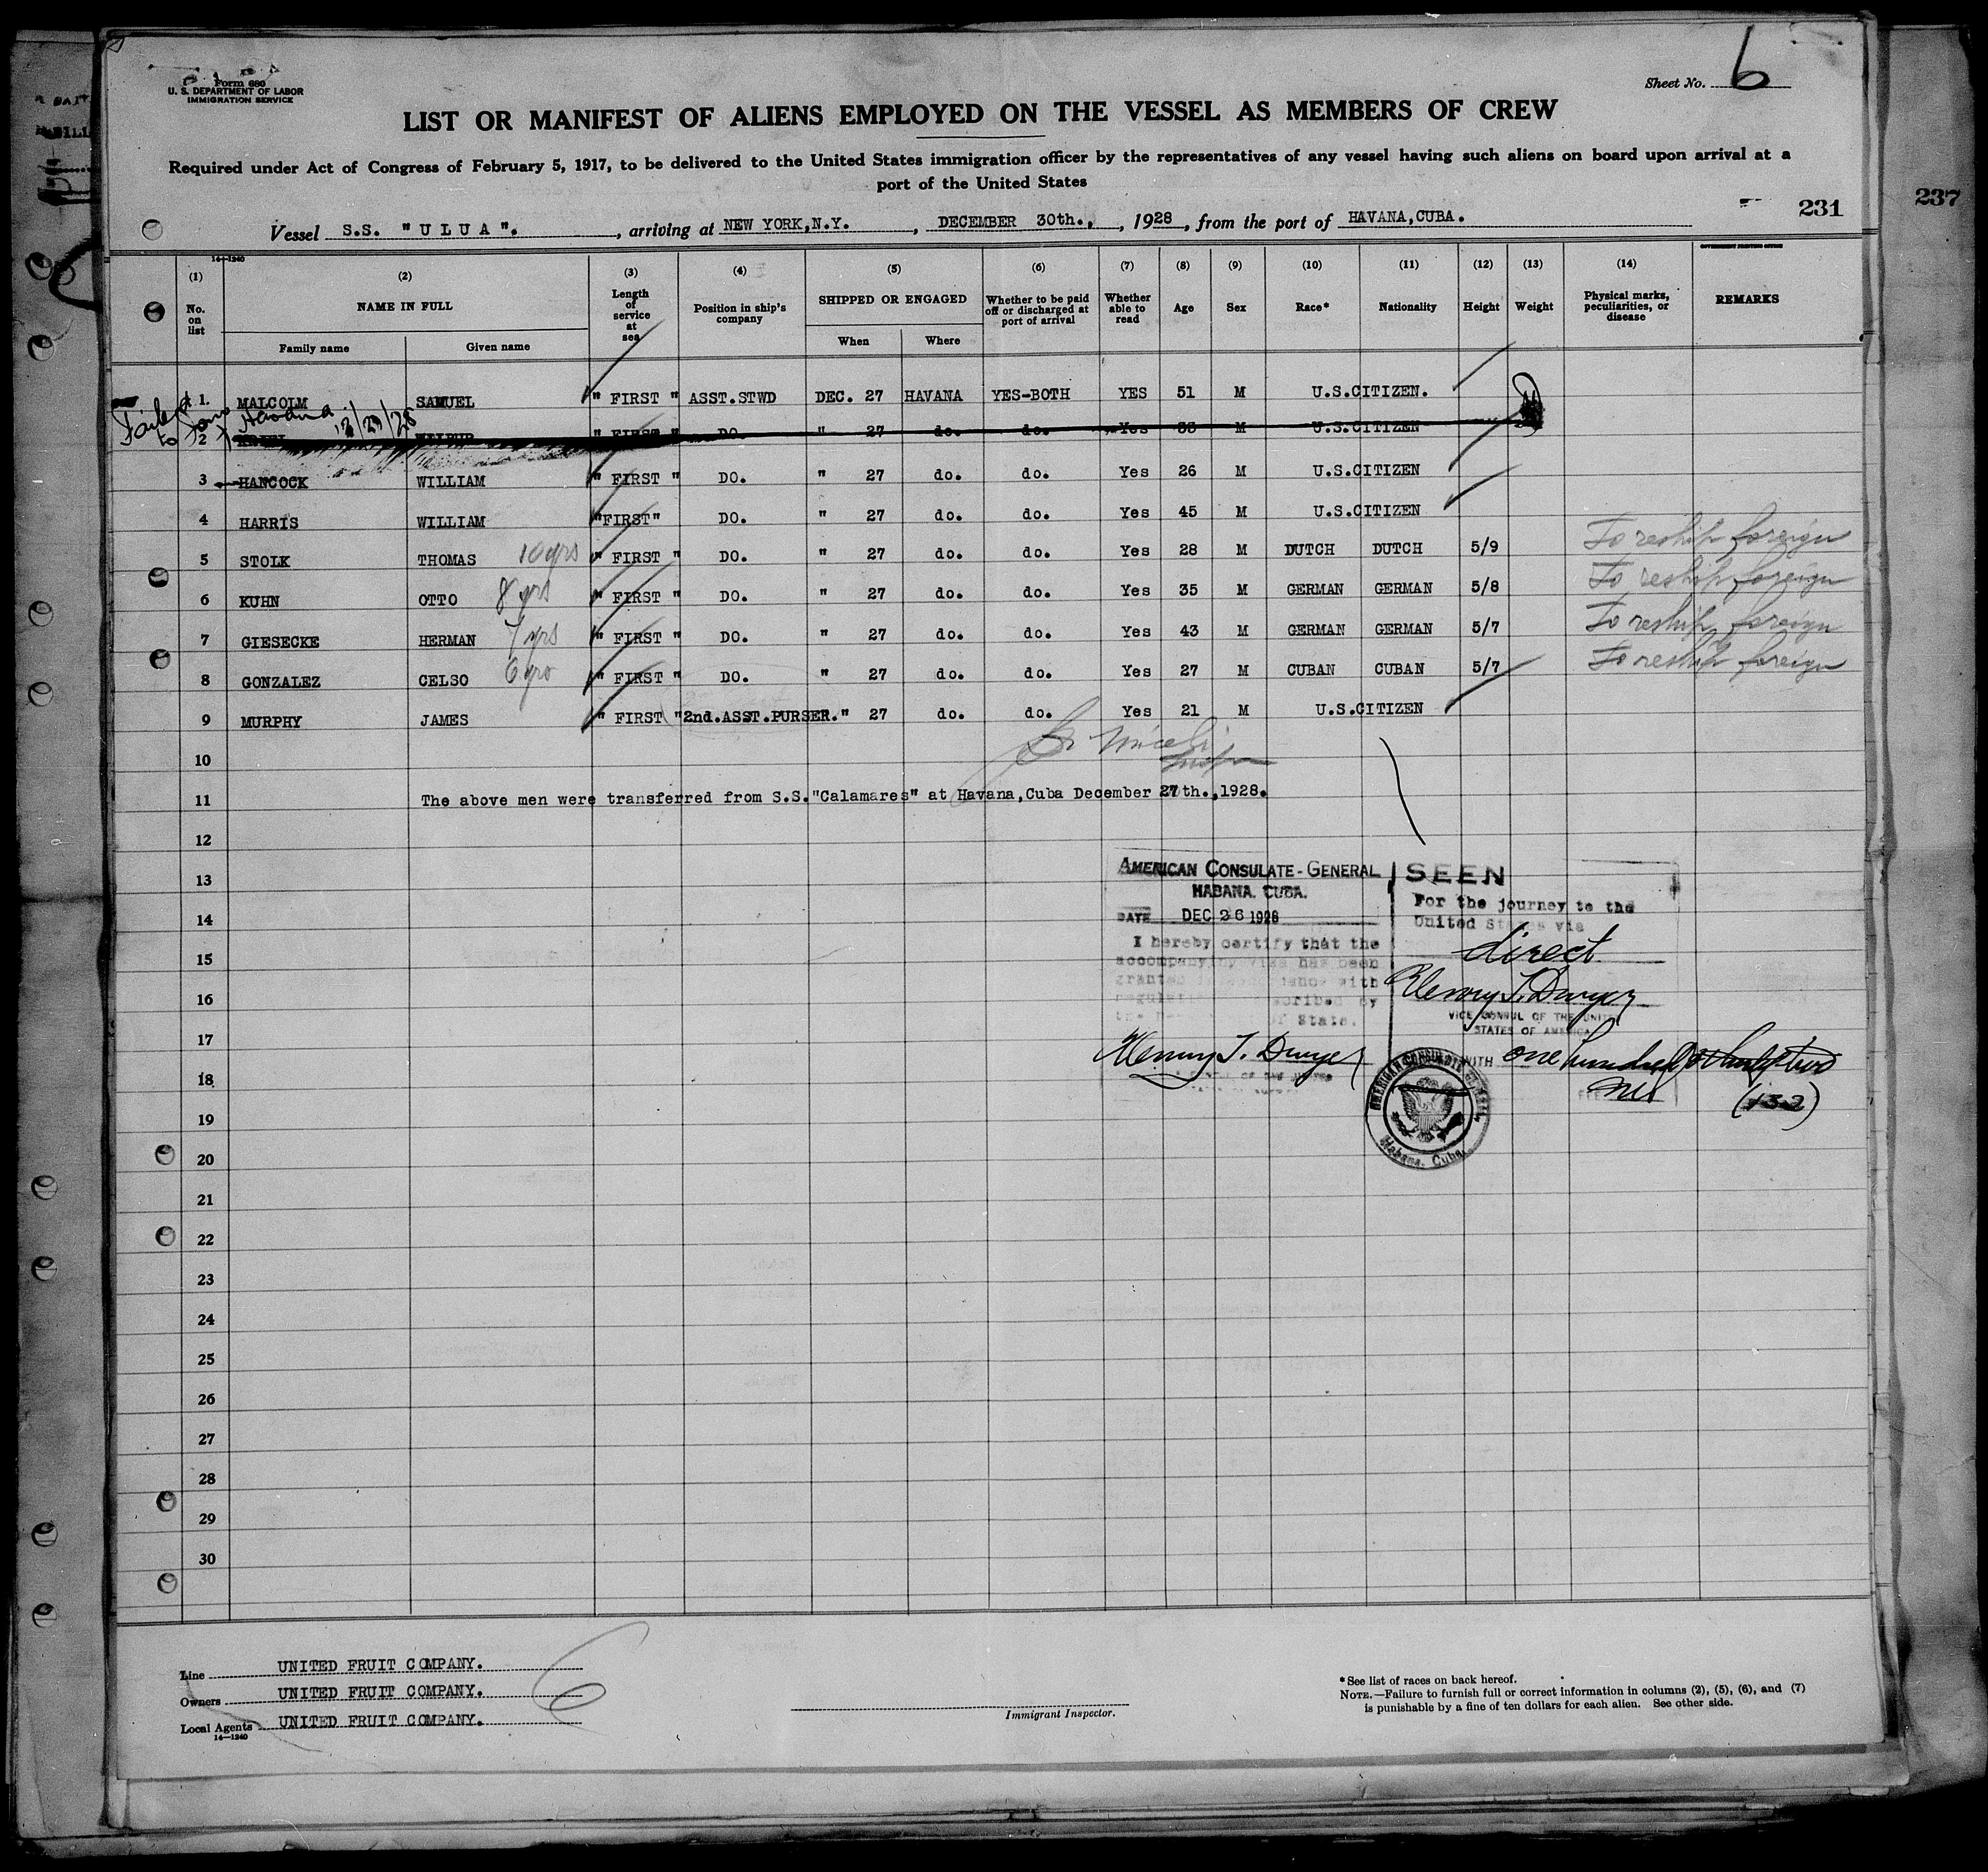 Form 680
U. S. DEPARTMENT OF LABOR
IMMIGRATION SERVICE
Sheet No. 6
LIST OR MANIFEST OF ALIENS EMPLOYED ON THE VESSEL AS MEMBERS OF CREW
Required under Act of Congress of February 5, 1917, to be delivered to the United States immigration officer by the representatives of any vessel having such aliens on board upon arrival at a
port of the United States
231
237
Vessel S.S. "ULUA". , arriving at NEW YORK,N.Y. , DECEMBER 30th., , 1928 , from the port of HAVANA,CUBA.
14-1240
GOVERNMENT PRINTING OFFICE
(1) (2) (3) (4) (5) (6) (7) (8) (9) (10) (11) (12) (13) (14)
No. on list NAME IN FULL Length of service at sea Position in ship's company SHIPPED OR ENGAGED Whether to be paid off or discharged at port of arrival Whether able to read Age Sex Race* Nationality Height Weight Physical marks, peculiarities, or disease REMARKS
Family name Given name When Where
1. MALCOLM SAMUEL " FIRST " ASST.STWD DEC. 27 HAVANA YES-BOTH YES 51 M U.S.CITIZEN.
Failed to Join Havana 12/27/28
2 WILBUR " FIRST " DO. " 27 do. do. Yes 33 M U.S.CITIZEN
3 HANCOCK WILLIAM " FIRST " DO. " 27 do. do. Yes 26 M U.S.CITIZEN
4 HARRIS WILLIAM "FIRST" DO. " 27 do. do. Yes 45 M U.S.CITIZEN
5 STOLK THOMAS 10 yrs " FIRST " DO. " 27 do. do. Yes 28 M DUTCH DUTCH 5/9 To reship foreign
6 KUHN OTTO 8 yrs " FIRST " DO. " 27 do. do. Yes 35 M GERMAN GERMAN 5/8 To reship foreign
7 GIESECKE HERMAN 7 yrs " FIRST " DO. " 27 do. do. Yes 43 M GERMAN GERMAN 5/7 To reship foreign
8 GONZALEZ CELSO 6 yrs " FIRST " DO. " 27 do. do. Yes 27 M CUBAN CUBAN 5/7 To reship foreign
9 MURPHY JAMES " FIRST "2nd.ASST.PURSER." 27 do. do. Yes 21 M U.S.CITIZEN
10
11 The above men were transferred from S.S."Calamares" at Havana,Cuba December 27th.,1928.
12
13
14
15
16
17
18
19
20
21
22
23
24
25
26
27
28
29
30
AMERICAN CONSULATE-GENERAL
HABANA. CUBA.
DATE DEC 26 1928
I hereby certify that the
accompanying visa has been
granted in accordance with
regulations prescribed by
of State.
Henry T. Dwyer
SEEN
For the journey to the
United States via
direct
Henry T. Dwyer
VICE CONSUL OF THE UNITED
STATES OF AMERICA
WITH one hundred thirty two
(132)
Habana, Cuba.
Line UNITED FRUIT COMPANY.
Owners UNITED FRUIT COMPANY.
Local Agents UNITED FRUIT COMPANY.
14-1240
6
Immigrant Inspector.
*See list of races on back hereof.
NOTE.—Failure to furnish full or correct information in columns (2), (5), (6), and (7)
is punishable by a fine of ten dollars for each alien. See other side.